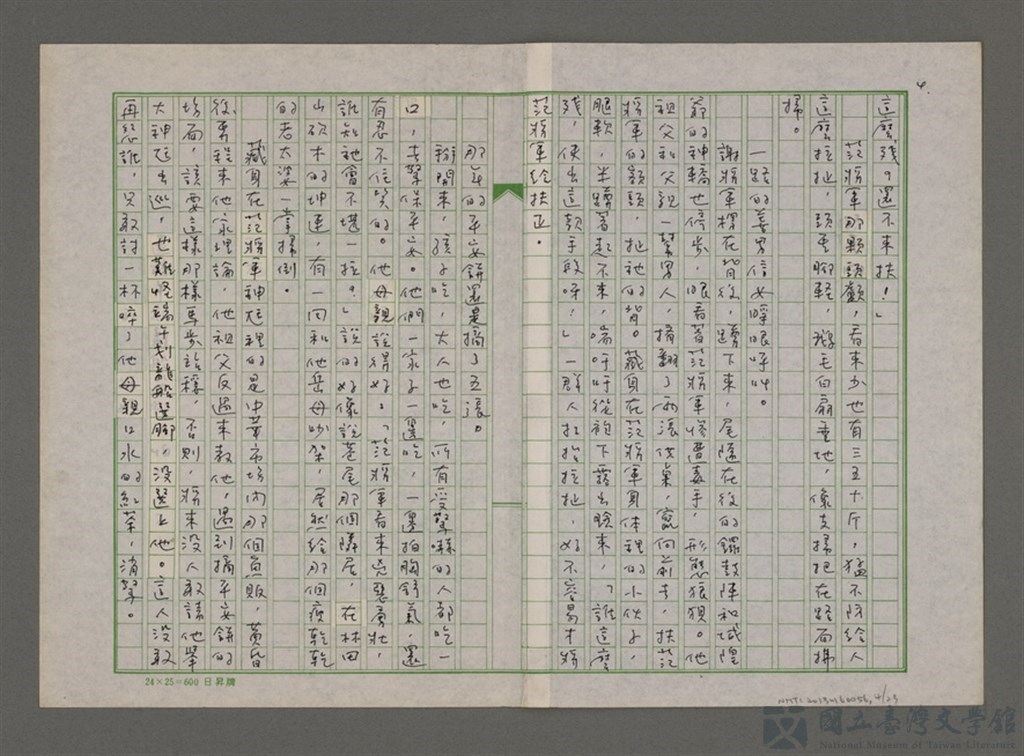 4.
這麼殘?還不來扶!」
范將軍那顆頭顱,看來少也有三五十斤,猛不防給人
這麼拉扯,頭重腳輕,鵝毛白扇垂地,像支掃把在路面拂
掃。
一路的善男信女睜眼呼叫。
謝將軍楞在背後,蹲下來,尾隨在後的鑼鼓陣和城隍
爺的神轎也停步,眼看著范將軍慘遭毒手,形態狼狽。他
祖父和父親一幫男人,撞翻了兩張供桌,竄向前去,扶范
將軍的額頭,扯祂的背。藏身在范將軍身体裡的小伙子,
腿軟,半蹲著起不來,喘吁吁從袍下露出臉來,「誰這麼
殘,使出這款手段呀!」一群人拉抬拉扯,好不容易才將
范將軍給扶正。
那年的平安餅還是摘了五張。
掰開來,孩子吃,大人也吃,所有受驚嚇的人都吃一
口,去驚保平安。他們一家子一邊吃,一邊拍胸舒氣,還
有忍不住笑的。他母親說得好:「范將軍看來兇惡勇壯,
誰知祂會不堪一拉?」說的好像說巷尾那個隣居,在林田
山砍木的坤連,有一回和他岳母吵架,居然給那個瘦乾乾
的老太婆一掌掃倒。
藏身在范將軍神尪裡的是中華市場內那個魚販,黃昏
後專程來他家理論,他祖父反過來教他,遇到摘平安餅的
場面,該要這樣那樣馬步站穩,否則,將來沒人敢請他舉
大神尪出巡,也難怪端午划龍船選腳,沒選上他。這人沒敢
再怨誰,只敢討一杯啐了他母親口水的紅茶,消驚。
24×25=600 日昇牌
NMTL20150160056, 4/23
國立臺灣文學館
National Museum of Taiwan Literature